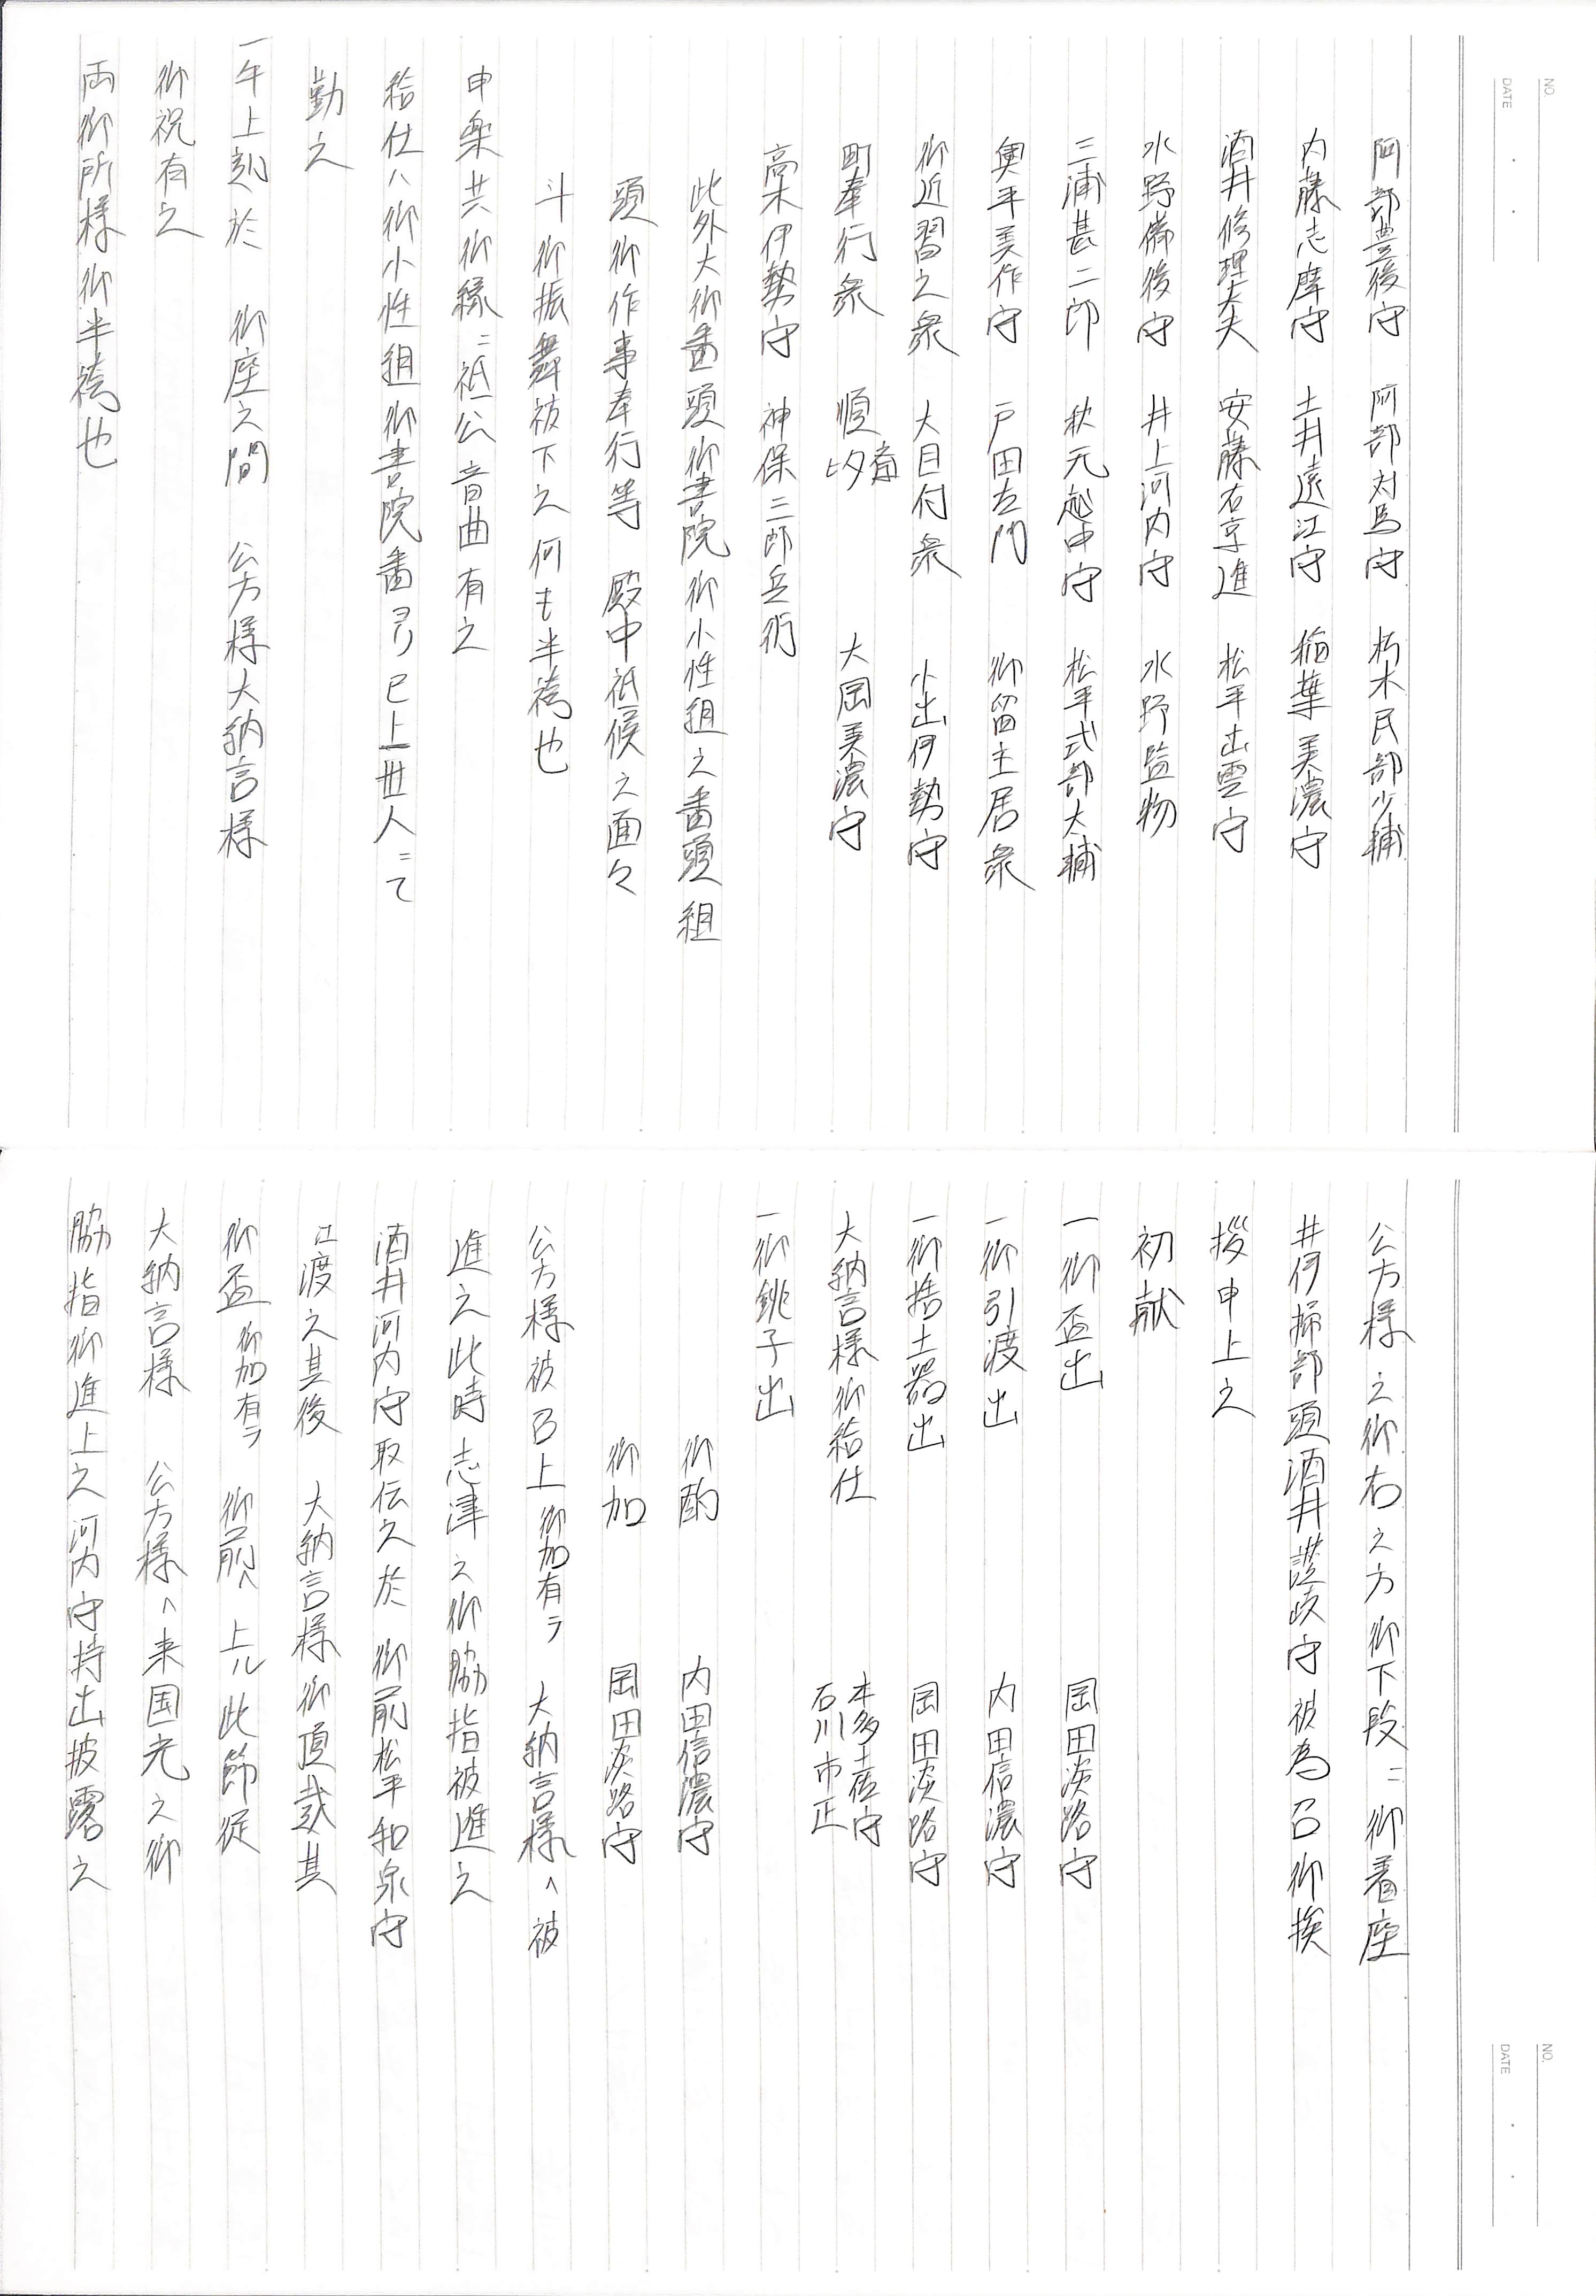 NO.
DATE
阿部豊後守　阿部対馬守　朽木民部少輔
内藤志摩守　土井遠江守　稲葉美濃守
酒井修理大夫　安藤右京進　松平出雲守
水野備後守　井上河内守　水野監物
三浦甚二郎　秋元越中守　松平式部大輔
奥平美作守　戸田左門　御留主居衆
御近習之衆　大目付衆　小出伊勢守
町奉行衆　順斎　大岡美濃守
高木伊勢守　神保三郎兵衛
此外大御番頭御書院御小性組之番頭組
頭御作事奉行等　殿中祗候之面々
斗御振舞被下之何も半袴也
申楽共御縁ニ祗公音曲有之
給仕ハ御小性組御書院番ヨリ已上卅人ニて
勤之
一午上刻於　御座之間　公方様大納言様
御祝有之
両御所様御半袴也
NO.
DATE
公方様之御右之方御下段ニ御着座
井伊掃部頭酒井讃岐守被為召御挨
拶申上之
初献
一御盃出　岡田淡路守
一御引渡出　内田信濃守
一御捨土器出　岡田淡路守
大納言様御給仕　本多土佐守
石川市正
一御銚子出
御酌　内田信濃守
御加　岡田淡路守
公方様被召上御加有テ　大納言様へ被
進之此時志津之御脇指被進之
酒井河内守取伝之於　御前松平和泉守
江渡之其後　大納言様御頂戴其
御盃御加有テ　御前へ上ル此節従
大納言様　公方様へ来国光之御
脇指御進上之河内守持出披露之